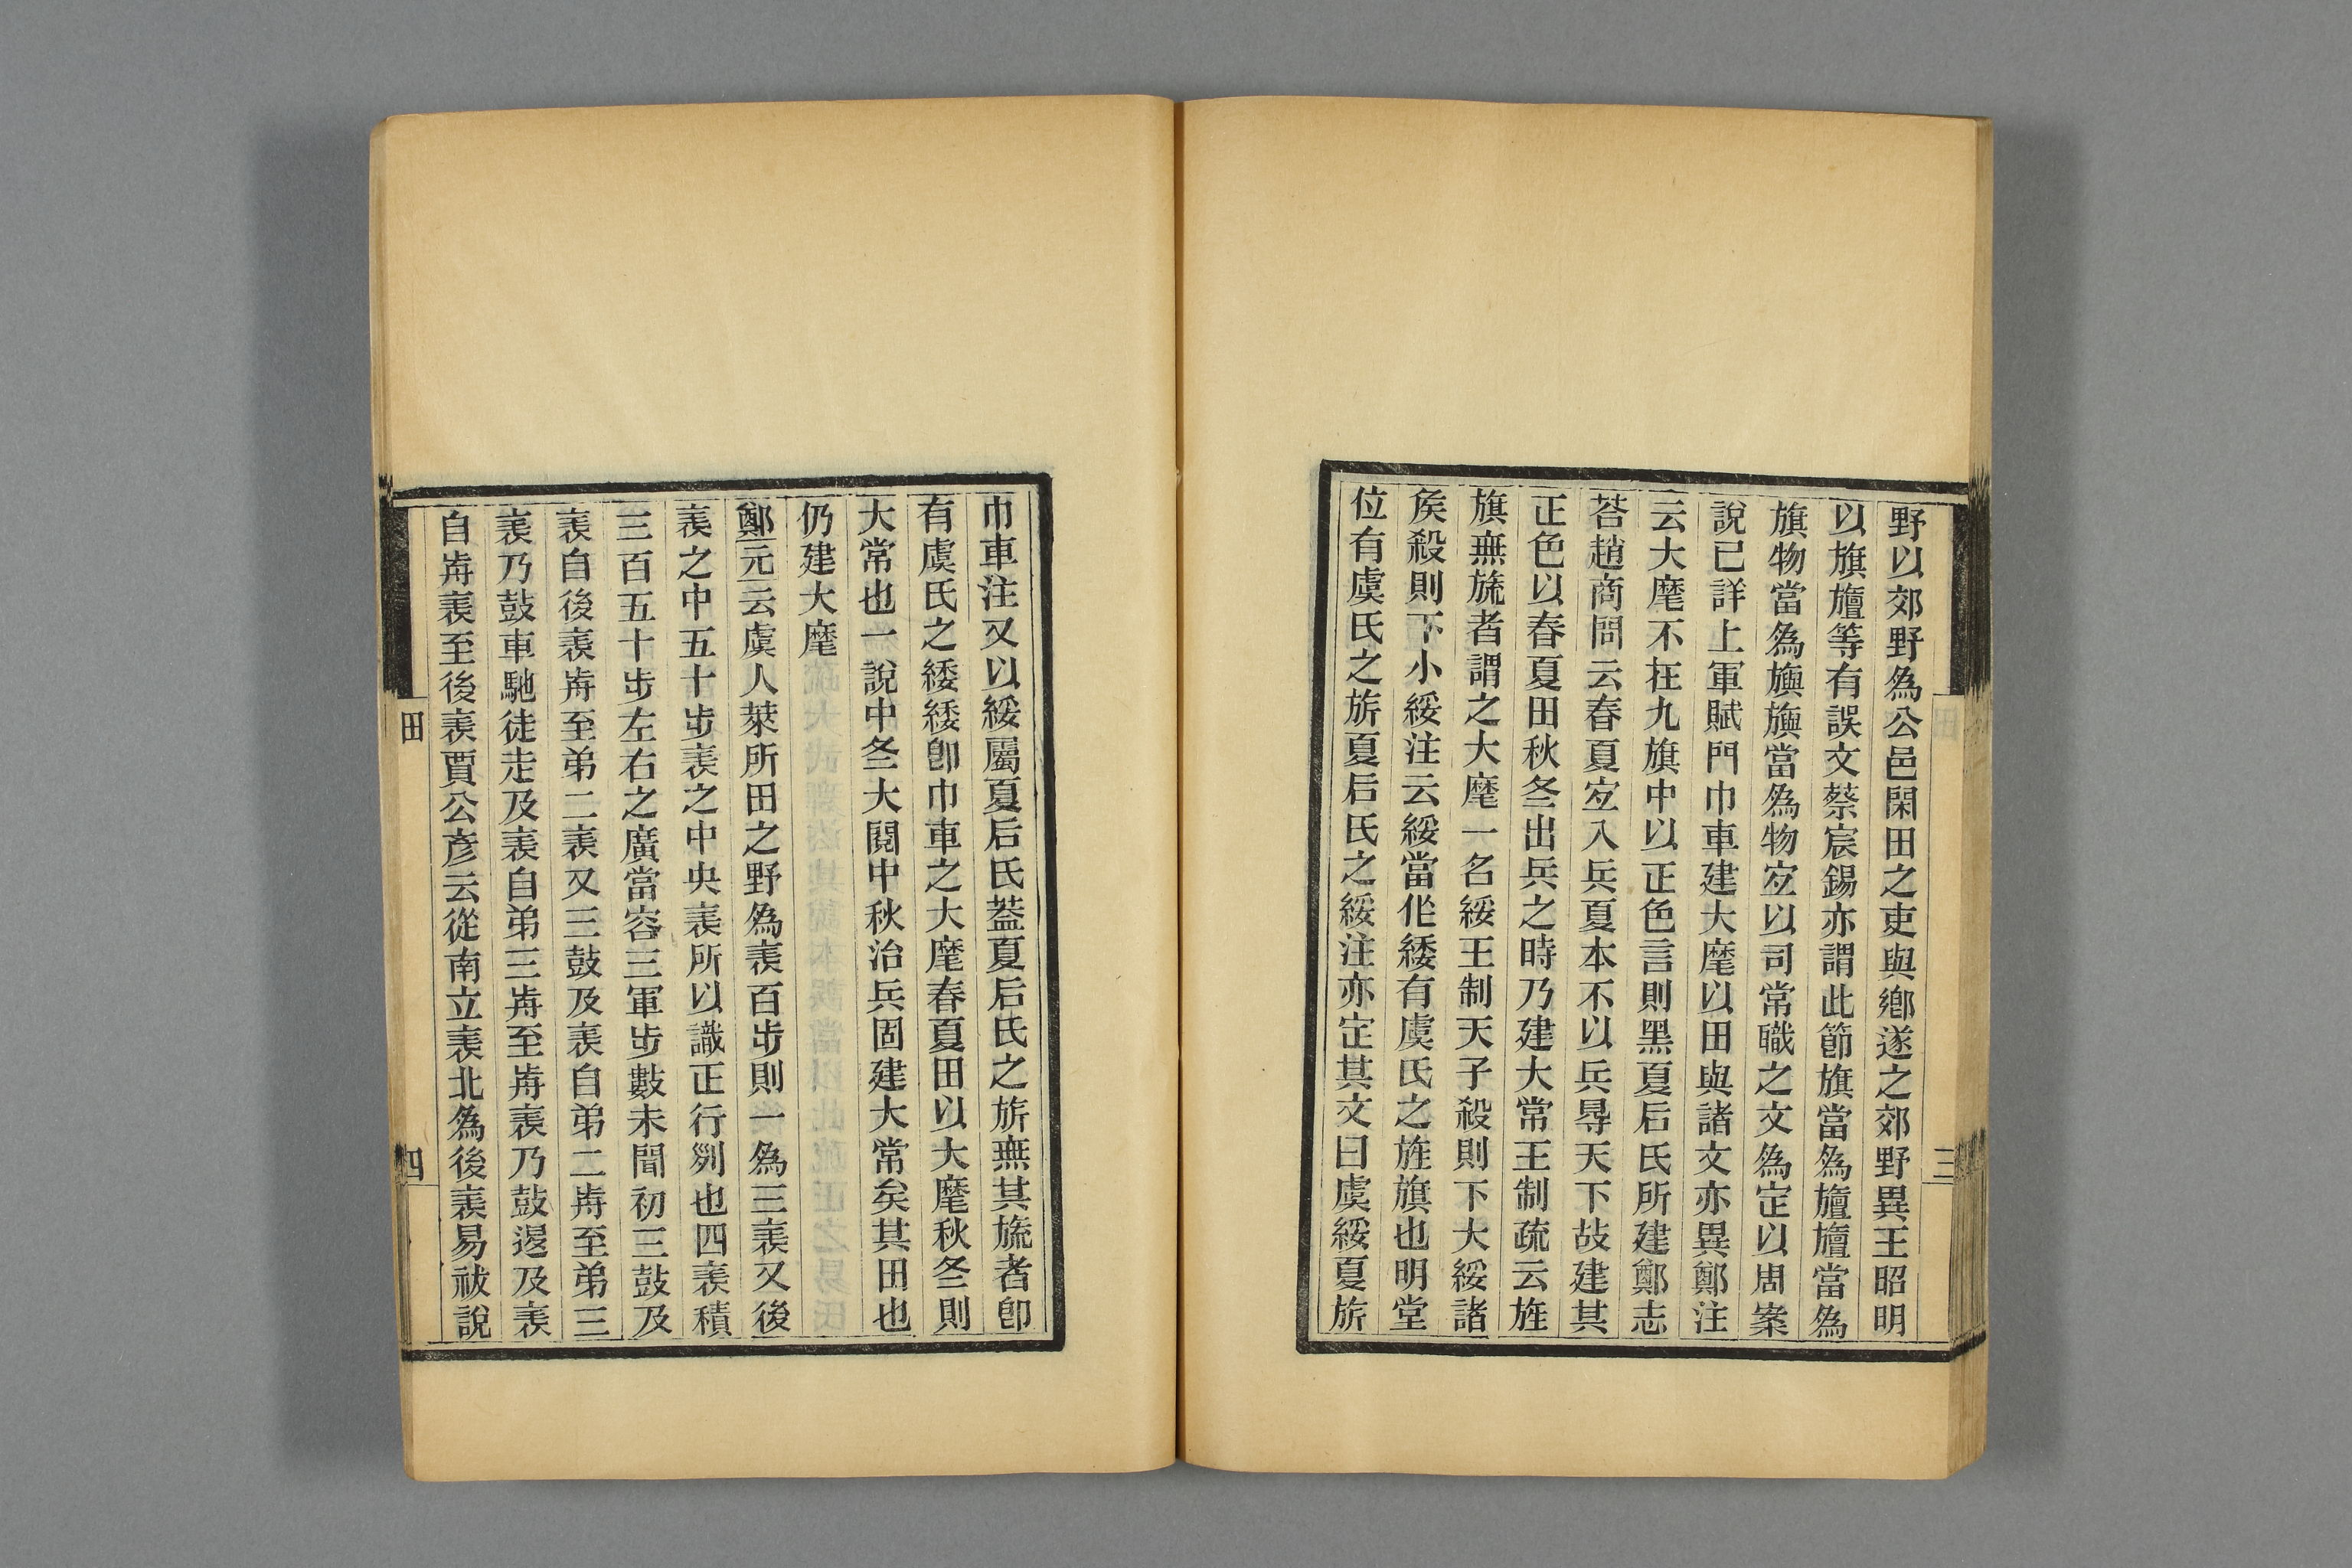 野以郊野爲公邑閑田之吏與鄉遂之郊野異王昭明
以旗旜等有誤文蔡宸錫亦謂此節旗當爲旜旜當爲
旗物當爲旟旟當爲物宐以司常職之文爲定以周案
說已詳上軍賦門巾車建大麾以田與諸文亦異鄭注
云大麾不在九旗中以正色言則黑夏后氏所建鄭志
荅趙商問云春夏宐入兵夏本不以兵尋天下故建其
正色以春夏田秋冬出兵之時乃建大常王制疏云旌
旗無旒者謂之大麾一名綏王制天子殺則下大綏諸
矦殺則下小綏注云綏當作緌有虞氏之旌旗也明堂
位有虞氏之旂夏后氏之綏注亦定其文曰虞綏夏旂
巾車注又以綏屬夏后氏葢夏后氏之旂無其旒者卽
有虞氏之緌緌卽巾車之大麾春夏田以大麾秋冬則
大常也一說中冬大閱中秋治兵固建大常矣其田也
仍建大麾
鄭元云虞人萊所田之野爲表百步則一爲三表又後
表之中五十步表之中央表所以識正行列也四表積
三百五十步左右之廣當容三軍步數未聞初三鼓及
表自後表歬至弟二表又三鼓及表自弟二歬至弟三
表乃鼓車馳徒走及表自弟三歬至歬表乃鼓退及表
自歬表至後表賈公彥云從南立表北爲後表易祓說
田
四
三